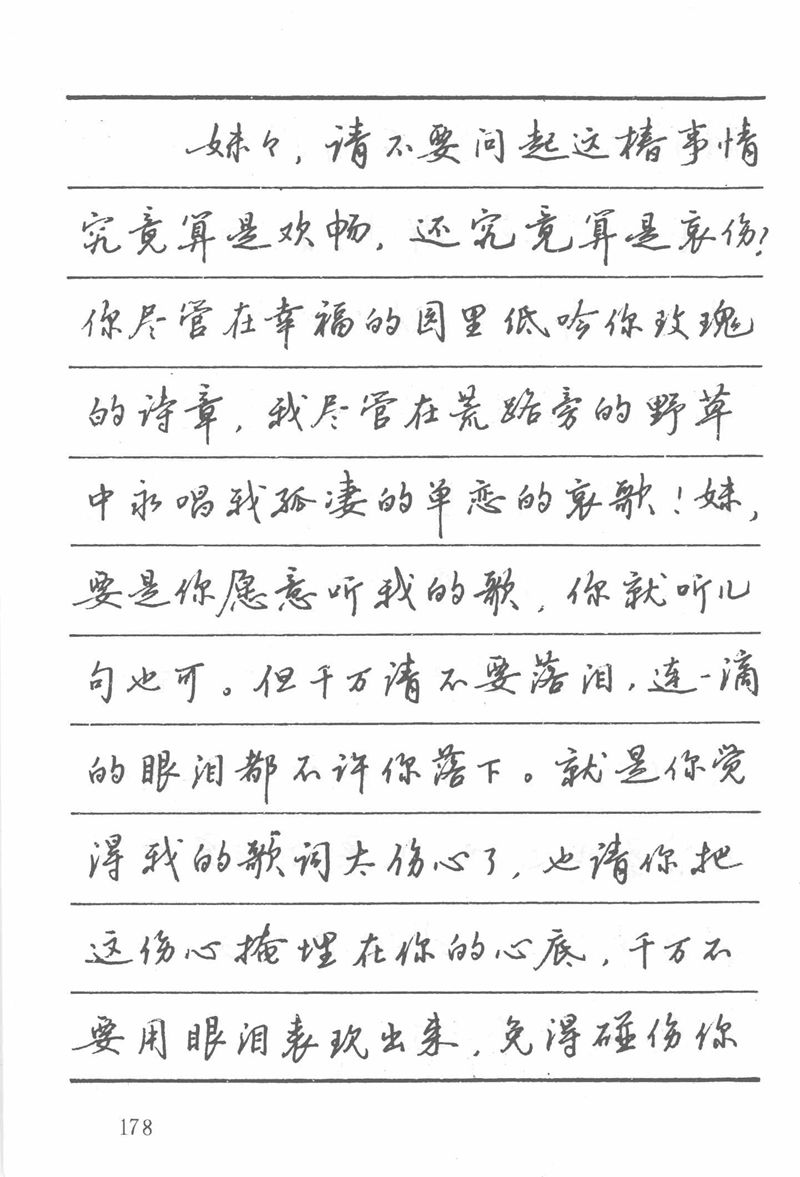 妹々，请不要问起这椿事情
究竟算是欢畅，还究竟算是哀伤？
你尽管在幸福的园里低吟你玫瑰
的诗章，我尽管在荒路旁的野草
中永唱我孤凄的单恋的哀歌！妹，
要是你愿意听我的歌，你就听几
句也可。但千万请不要落泪，连一滴
的眼泪都不许你落下。就是你觉
得我的歌词太伤心了，也请你把
这伤心掩埋在你的心底，千万不
要用眼泪表现出来，免得碰伤你
178